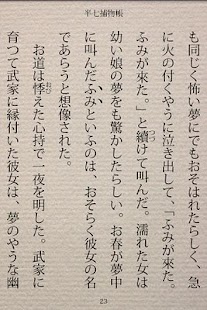 半七捕物帳
も同じく怖い夢にでもおそはれたらしく、急
に火の付くやうに泣き出して、「ふみが来た。
ふみが来た。」と續けて叫んだ。濡れた女は
幼い娘の夢をも驚かしたらしい。お春が夢中
に叫んだふみといふのは、おそらく彼女の名
であらうと想像された。
お道は悸えた心持で一夜を明した。武家に
育つて武家に縁付いた彼女は、夢のやうな幽
23